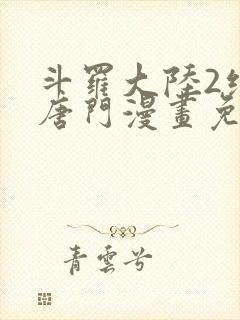 斗羅大陸2
唐門漫畫免
青雲兮